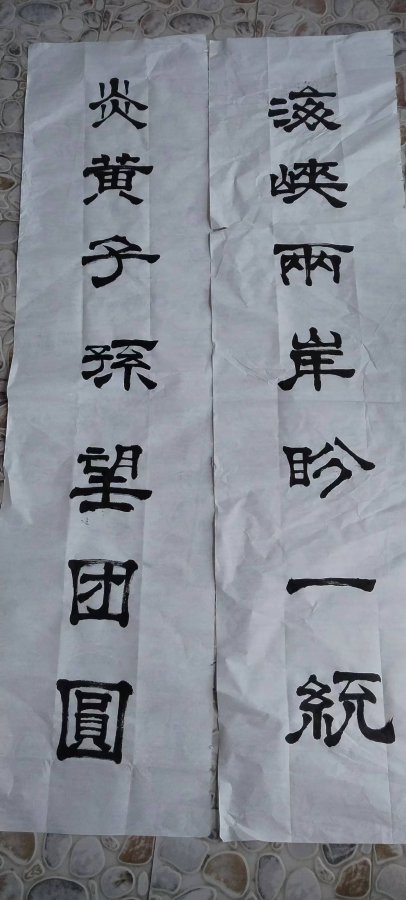 海峡兩岸盼一統
炎黄子孫望团圓